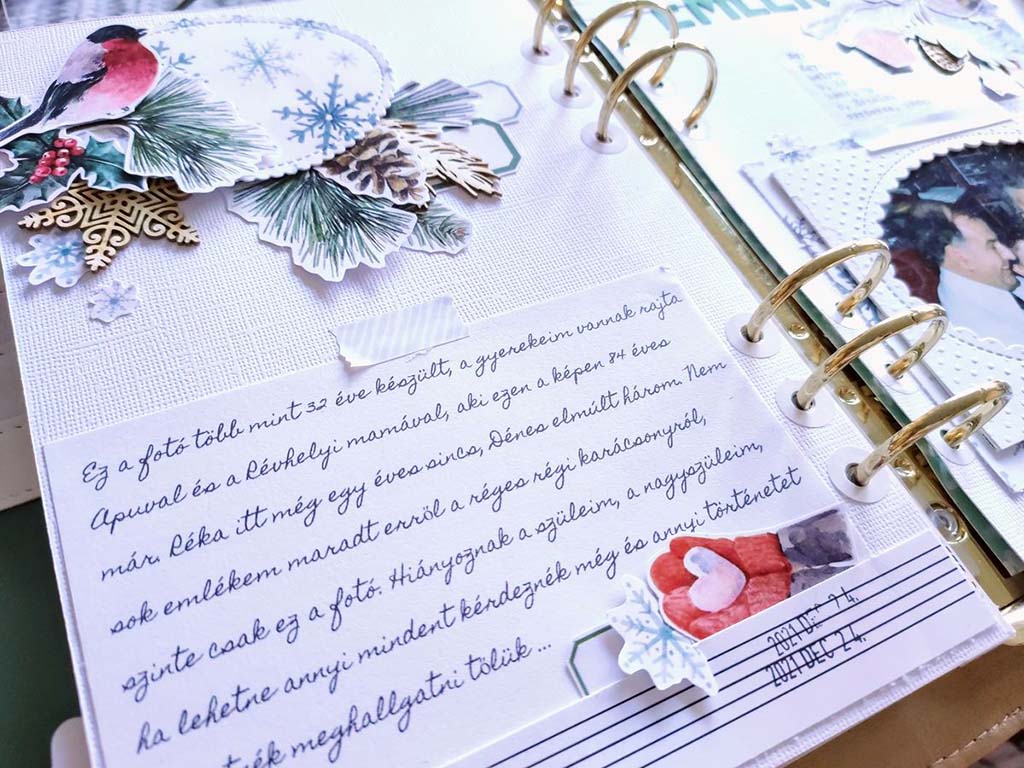 Ez a fotó több mint 32 éve készült, a gyerekeim vannak rajta
Apuval és a Révhelyi mamával, aki ezen a képen 84 éves
már. Réka itt még egy éves sincs, Dénes elmúlt három. Nem
sok emlékem maradt erről a réges régi karácsonyról,
szinte csak ez a fotó. Hiányoznak a szüleim, a nagyszüleim,
ha lehetne annyi mindent kérdeznék még és annyi történetet
meghallgatni tőlük ...
2021 DEC 24.
2021 DEC 24.